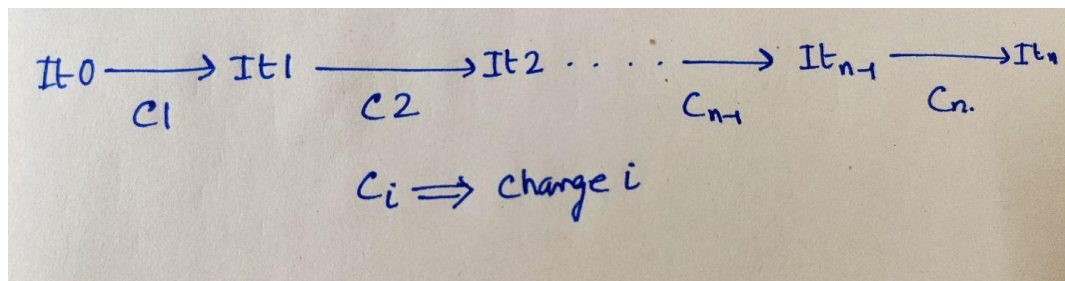 It0 → It1 → It2 ..... → Itn-1 → Itn
C1 C2 Cn-1 Cn.
Ci ⇒ Change i